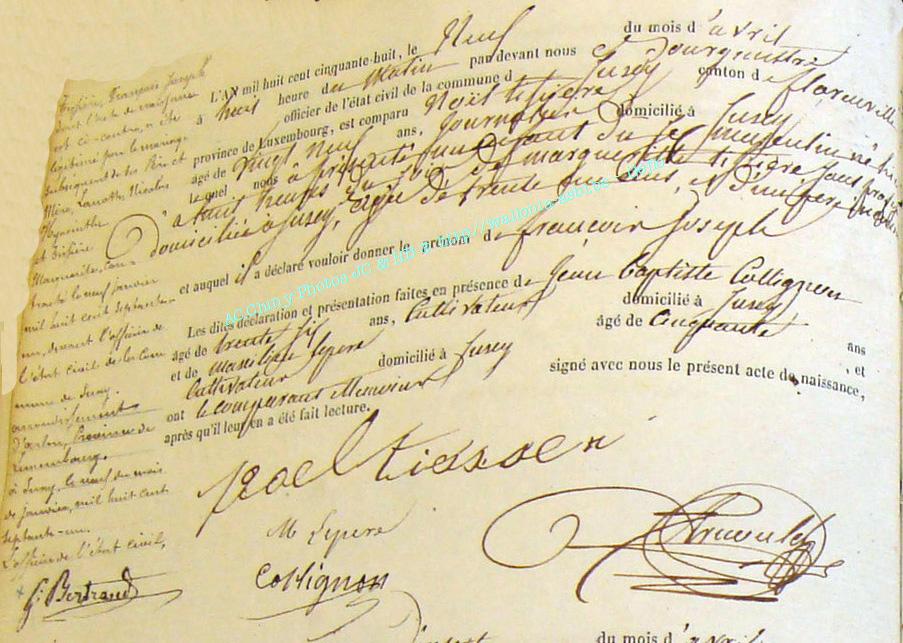 L'AN mil huit cent cinquante-huit, le Neuf du mois d'avril
à huit heure du Matin par devant nous Bourgmestre
officier de l'état civil de la commune d Jusey canton de florenville
province de Luxembourg, est comparu Noël tissière
âgé de Vingt neuf ans, Journalier domicilié à Jusey
lequel nous a présenté un enfant du sexe masculin né hier
à huit heures du soir de marguerite tissière sans profession
domiciliée à Jusey, agée de trente un ans, et d'un père inconnu
et auquel il a déclaré vouloir donner le prénom de françois Joseph
Les dites déclaration et présentation faites en présence de Jean Baptiste Collignon
âgé de trente six ans, Cultivateur domicilié à Jusey
et de maximilien Lepere âgé de Cinquante ans
Cultivateur domicilié à Jusey, et
ont le comparant et les témoins signé avec nous le présent acte de naissance,
après qu'il leur en a été fait lecture.
Noel tiessen
M Lepere
Collignon
Joseph
dont l'acte de naissance
est ci-contre, a été
légitimé par le mariage
subséquent de ses Père et
Mère, Lamotte Nicolas
Hyacinthe
et
Marguerite, con-
tracté le neuf janvier
mil huit cent septante-
un, devant l'officier de
l'état civil de la com
mune de Jusey,
arrondissement
d'arlon, Province de
Luxembourg.
à Jusey, le neuf du mois
de janvier, mil huit cent
septante-un.
L'officier de l'état civil,
G. Bertrand
AC Chiny Photos JC &
du mois d'avril